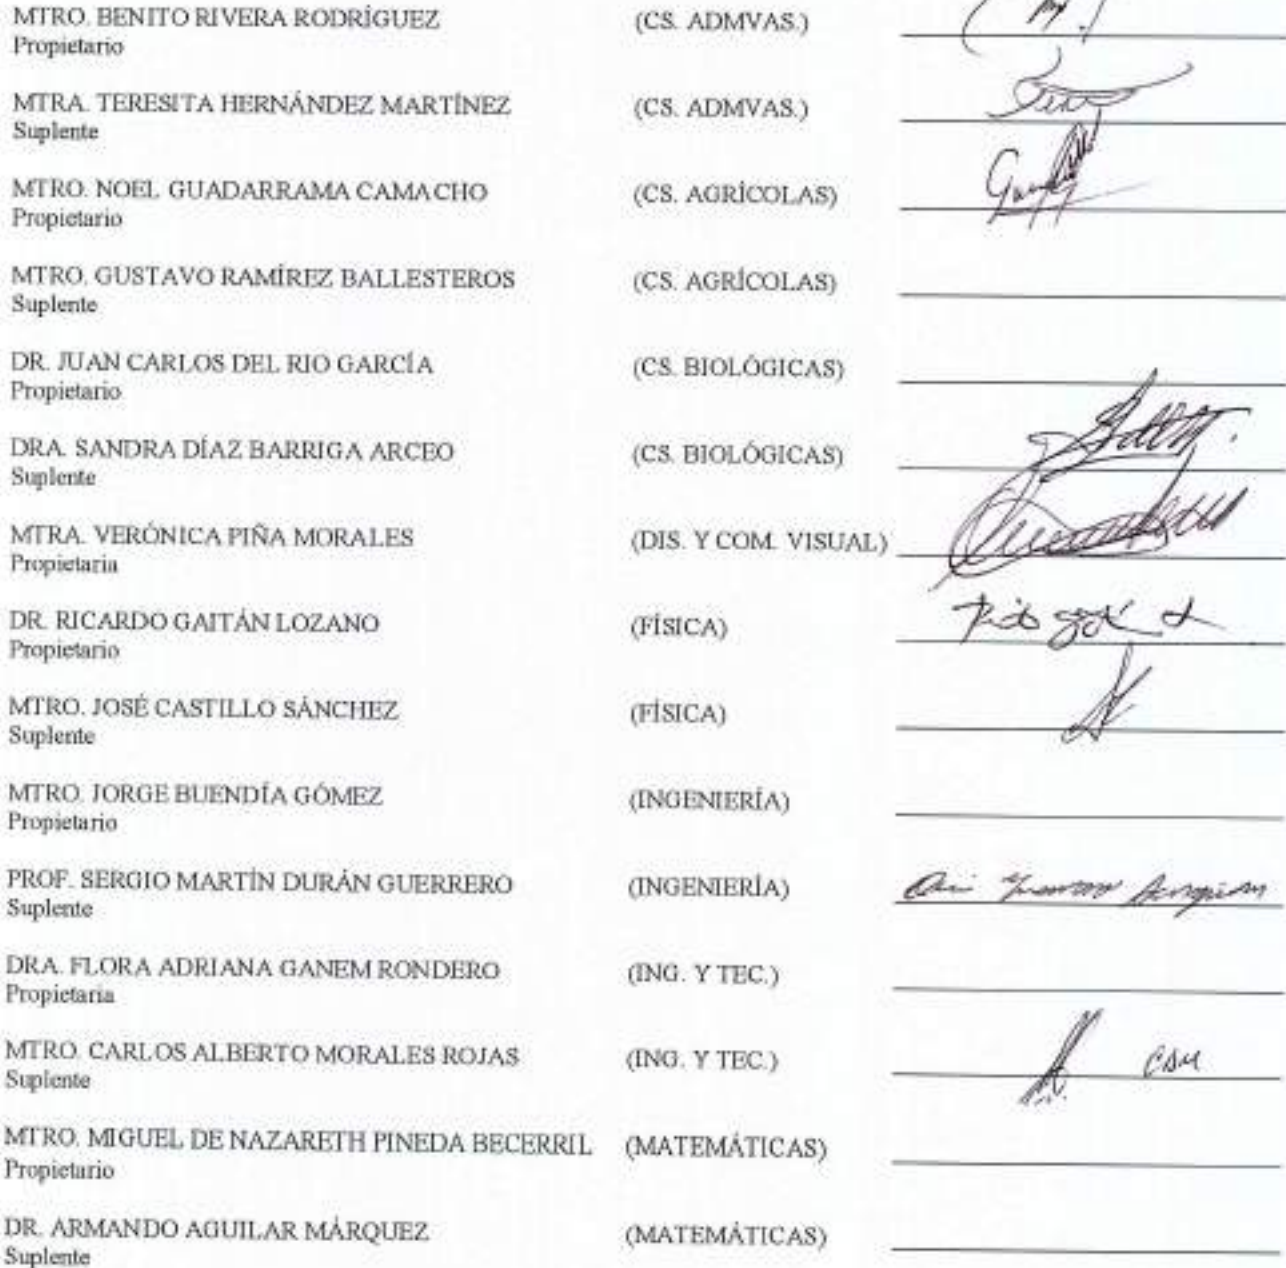 MTRO. BENITO RIVERA RODRÍGUEZ (CS. ADMVAS.)
Propietario
MTRA. TERESITA HERNÁNDEZ MARTÍNEZ (CS. ADMVAS.)
Suplente
MTRO. NOEL GUADARRAMA CAMACHO (CS. AGRÍCOLAS)
Propietario
MTRO. GUSTAVO RAMÍREZ BALLESTEROS (CS. AGRÍCOLAS)
Suplente
DR. JUAN CARLOS DEL RIO GARCÍA (CS. BIOLÓGICAS)
Propietario
DRA. SANDRA DÍAZ BARRIGA ARCEO (CS. BIOLÓGICAS)
Suplente
MTRA. VERÓNICA PIÑA MORALES (DIS. Y COM. VISUAL)
Propietaria
DR. RICARDO GAITÁN LOZANO (FÍSICA)
Propietario
MTRO. JOSÉ CASTILLO SÁNCHEZ (FÍSICA)
Suplente
MTRO. JORGE BUENDÍA GÓMEZ (INGENIERÍA)
Propietario
PROF. SERGIO MARTÍN DURÁN GUERRERO (INGENIERÍA)
Suplente
DRA. FLORA ADRIANA GANEM RONDERO (ING. Y TEC.)
Propietaria
MTRO. CARLOS ALBERTO MORALES ROJAS (ING. Y TEC.)
Suplente
MTRO. MIGUEL DE NAZARETH PINEDA BECERRIL (MATEMÁTICAS)
Propietario
DR. ARMANDO AGUILAR MÁRQUEZ (MATEMÁTICAS)
Suplente